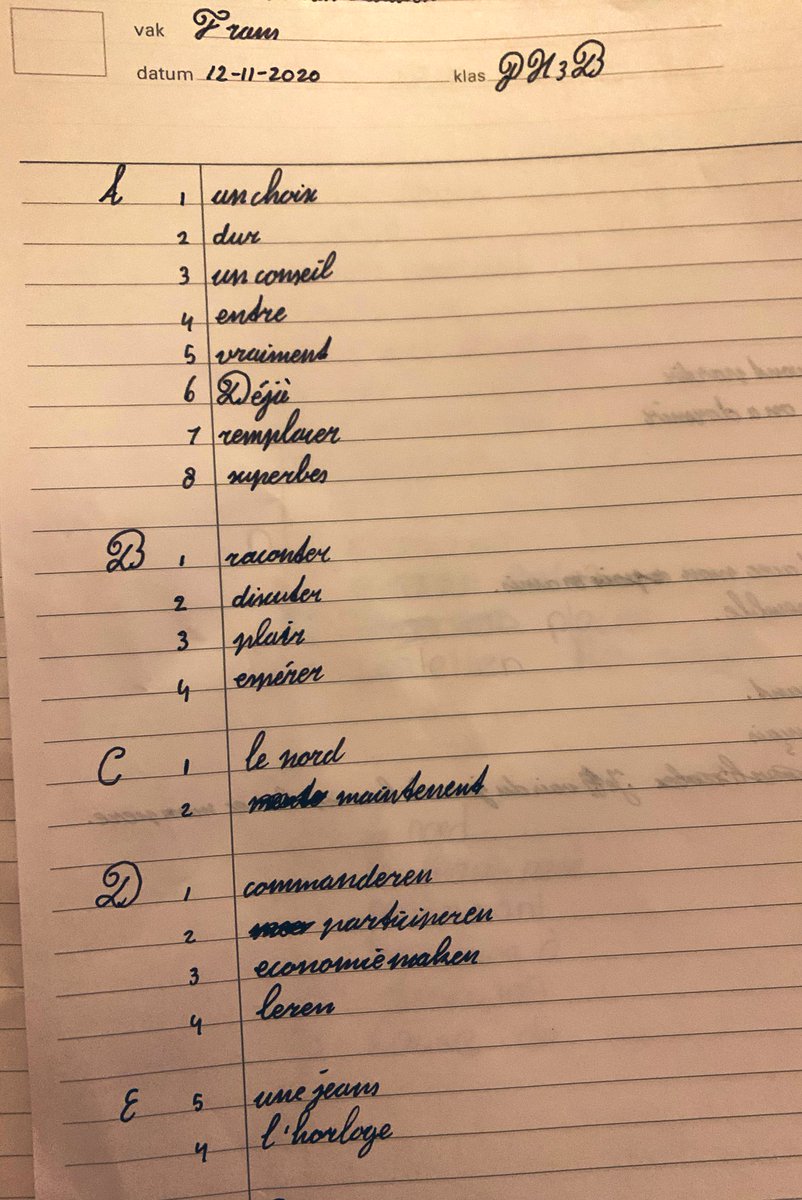 vak Frans
datum 12-11-2020 klas PH3B
A 1 un choix
2 dur
3 un conseil
4 entre
5 vraiment
6 Déjà
7 remplacer
8 superbes
B 1 raconter
2 discuter
3 plair
4 espérer
C 1 le nord
2 maintenent
D 1 commanderen
2 participeren
3 economië maken
4 leren
E 5 une jeans
4 l'horloge